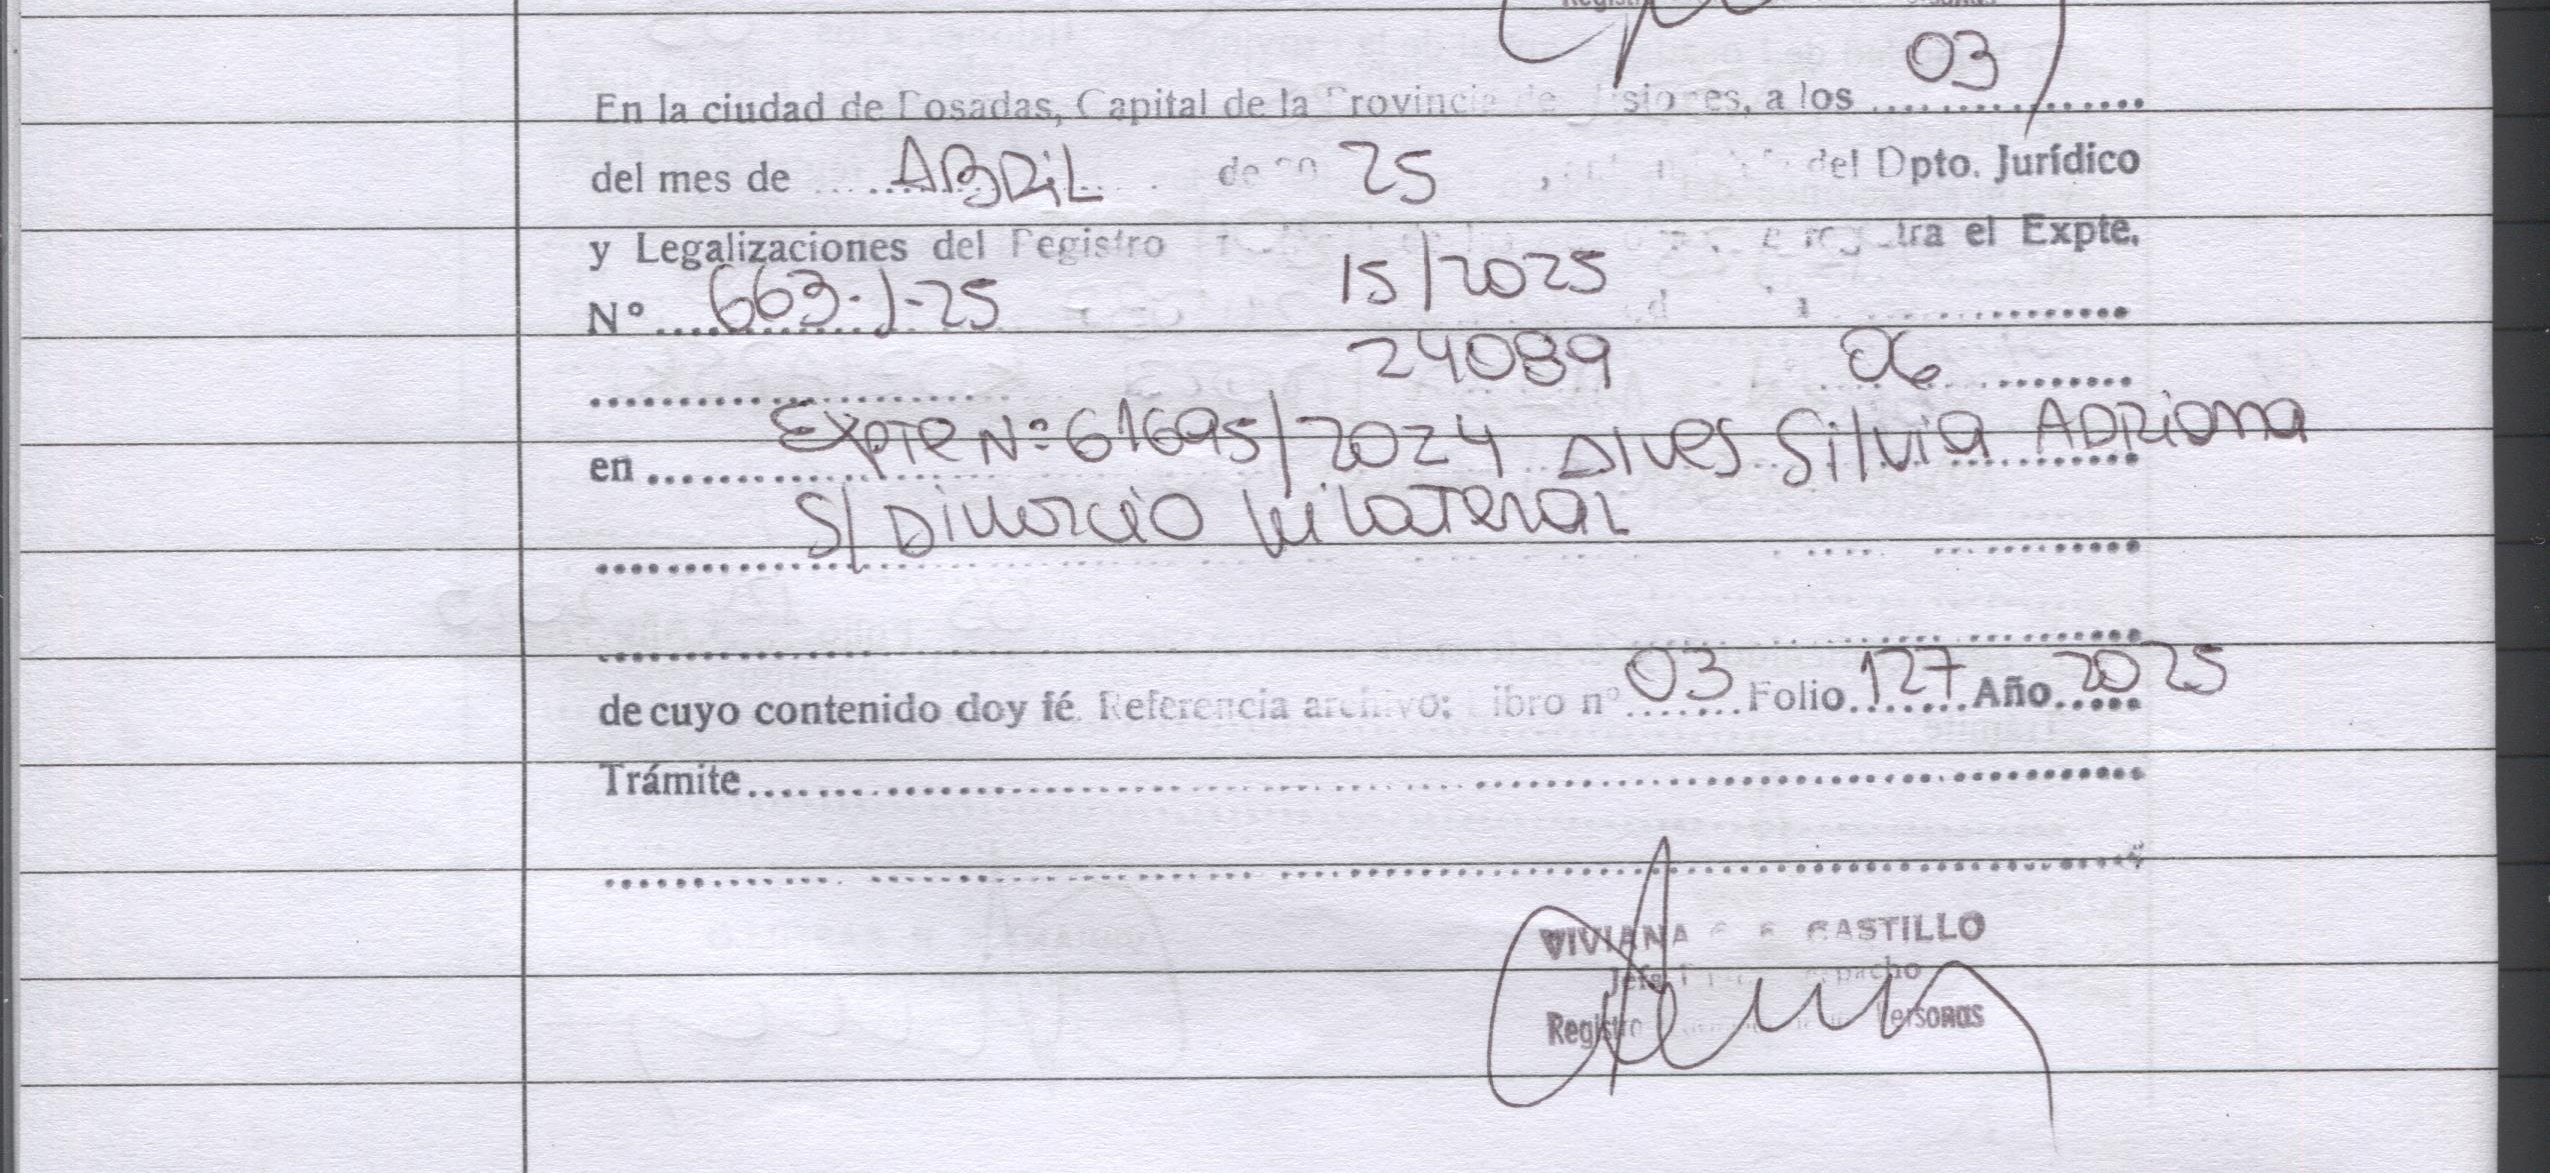 En la ciudad de Posadas, Capital de la Provincia de Misiones, a los 03
del mes de ABRIL de 20 25, del Dpto. Jurídico
y Legalizaciones del Registro tra el Expte.
Nº 663-J-25 15/2025
24089 06
en Expte Nº 61695/2024 Silvia ADRiana
S/ Divorcio
de cuyo contenido doy fé. Referencia archivo: Libro nº 03 Folio 127 Año 2025
Trámite
VIVIANA CASTILLO
Jefa Despacho
Registro Personas